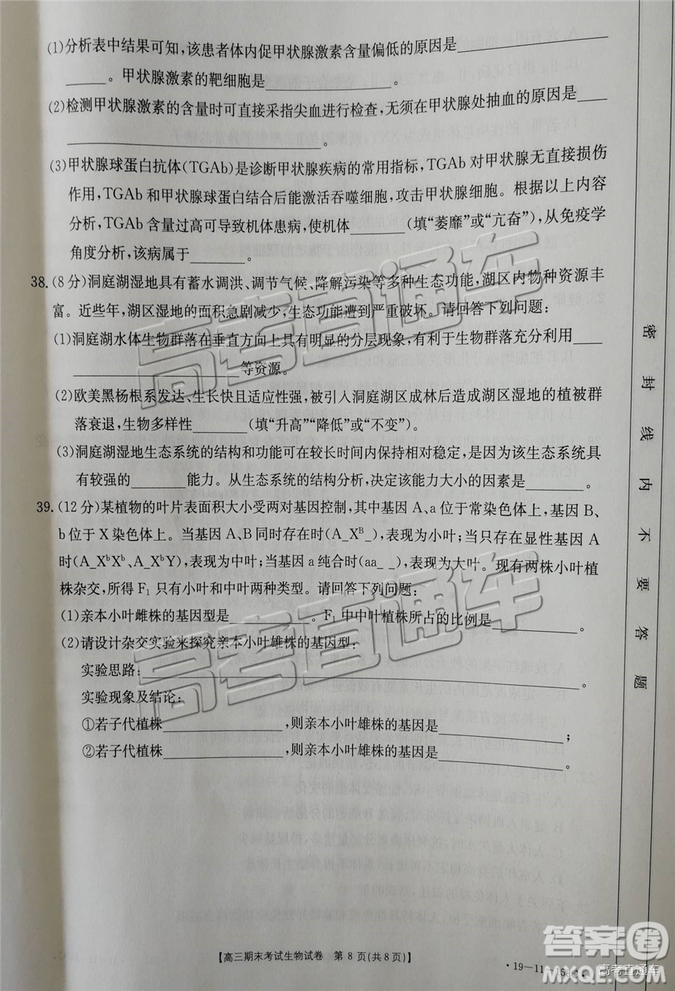 (1)分析表中结果可知，该患者体内促甲状腺激素含量偏低的原因是
。甲状腺激素的靶细胞是 。
(2)检测甲状腺激素的含量时可直接采指尖血进行检查，无须在甲状腺处抽血的原因是
。
(3)甲状腺球蛋白抗体(TGAb)是诊断甲状腺疾病的常用指标，TGAb对甲状腺无直接损伤
作用，TGAb和甲状腺球蛋白结合后能激活吞噬细胞，攻击甲状腺细胞。根据以上内容
分析，TGAb含量过高可导致机体患病，使机体 (填“萎靡”或“亢奋”)，从免疫学
角度分析，该病属于 。
38.(8分)洞庭湖湿地具有蓄水调洪、调节气候、降解污染等多种生态功能，湖区内物种资源丰
富。近些年，湖区湿地的面积急剧减少，生态功能遭到严重破坏。请回答下列问题：
(1)洞庭湖水体生物群落在垂直方向上具有明显的分层现象，有利于生物群落充分利用
等资源。
(2)欧美黑杨根系发达、生长快且适应性强，被引入洞庭湖区成林后造成湖区湿地的植被群
落衰退，生物多样性 (填“升高”“降低”或“不变”)。
(3)洞庭湖湿地生态系统的结构和功能可在较长时间内保持相对稳定，是因为该生态系统具
有较强的 能力。从生态系统的结构分析，决定该能力大小的因素是 。
39.(12分)某植物的叶片表面积大小受两对基因控制，其中基因A、a位于常染色体上，基因B、
b位于X染色体上。当基因A、B同时存在时(A_XᴮX_)，表现为小叶；当只存在显性基因A
时(A_XᵇXᵇ、A_XᵇY)，表现为中叶；当隐性基因a纯合时(aa_ _)，表现为大叶。现有两株小叶
植株杂交，所得F₁只有小叶和中叶两种类型。请回答下列问题：
(1)亲本小叶雌株的基因型是 。F₁中中叶植株所占的比例是 。
(2)请设计杂交实验来探究亲本小叶雄株的基因型：
实验思路： 。
实验现象及结论：
①若子代植株 ，则亲本小叶雄株的基因是 ；
②若子代植株 ，则亲本小叶雄株的基因是 。
密封线内不要答题
【高三期末考试生物试卷 第8页(共8页)】
·19-11
高考直通车
答案圈
高考直通车